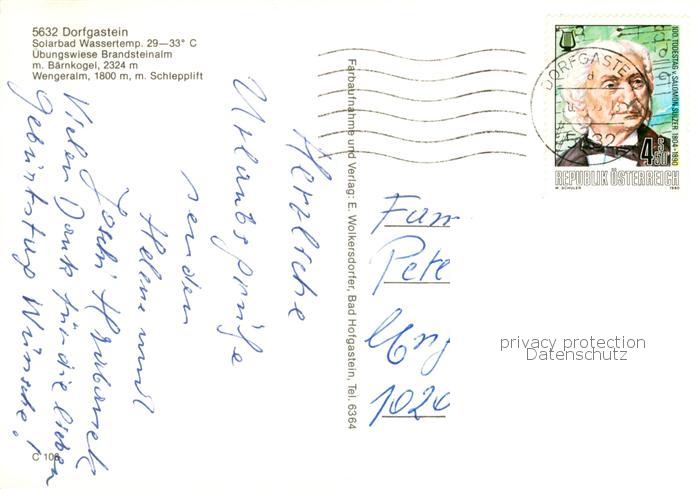 5632 Dorfgastein
Solarbad Wassertemp. 29—33° C
Übungswiese Brandsteinalm
m. Bärnkogel, 2324 m
Wengeralm, 1800 m, m. Schlepplift
Herzliche
Urlaubsgrüße
senden
Helene und
Joschi
Vielen Dank für die lieben
Geburtstags Wünsche!
C 106
Farbaufnahme und Verlag: E. Wolkersdorfer, Bad Hofgastein, Tel. 6364
DORFGASTEIN
5632
100. TODESTAG v. SALOMON SULZER 1804-1890
S 4.50
REPUBLIK ÖSTERREICH
Fam
Pete
1020
privacy protection
Datenschutz